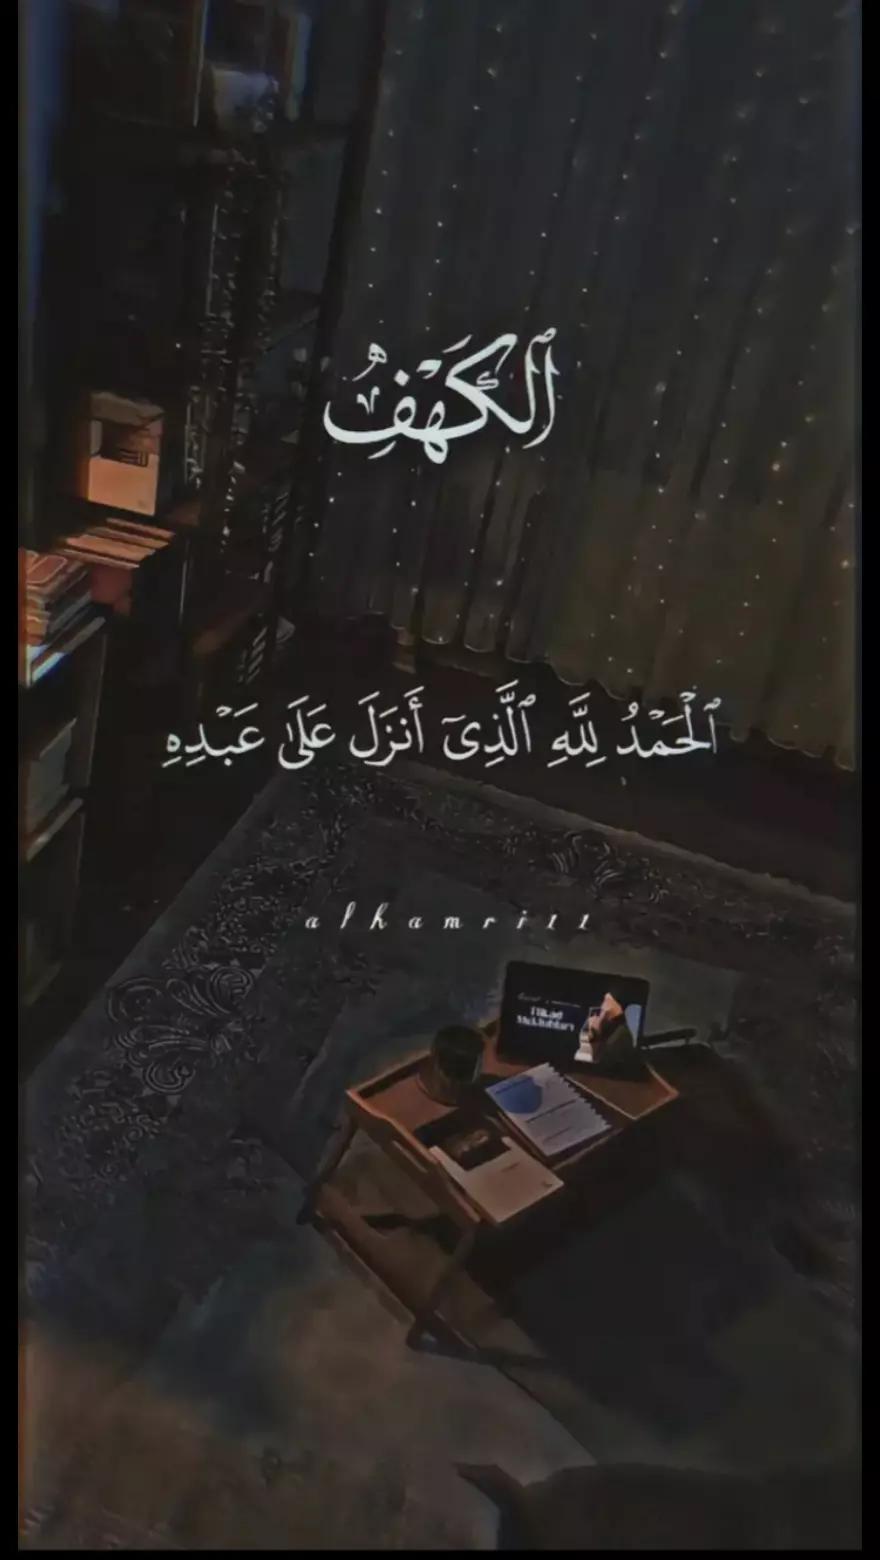 ٱلْكَهْفِ
ٱلْحَمْدُ لِلَّهِ ٱلَّذِىٓ أَنزَلَ عَلَىٰ عَبْدِهِ
alhamri11